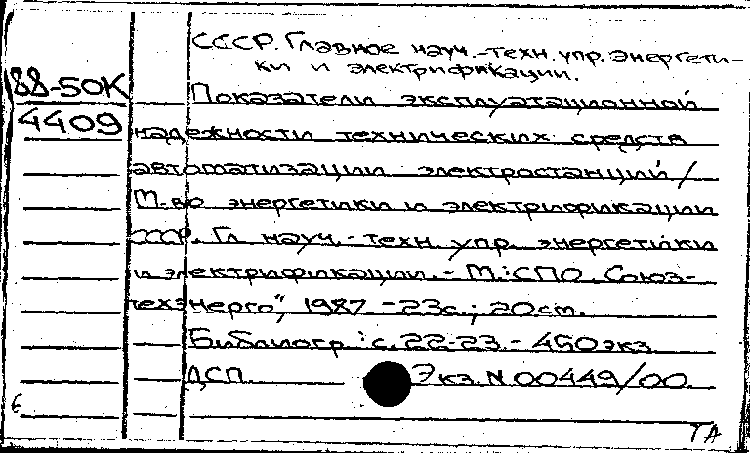 СССР. Главное науч.-техн. упр. энергети-
ки и электрификации.
88-50К
4409
Показатели эксплуатационной
надежности технических средств
автоматизации электростанций /
М-во энергетики и электрификации
СССР. Гл. науч.-техн. упр. энергетики
и электрификации. - М.: СПО Союз-
техэнерго", 1987. - 23с.; 20см.
Библиогр.: с. 22-23. - 450 экз.
ДСП. Экз. N 00449/00.
6
ТА